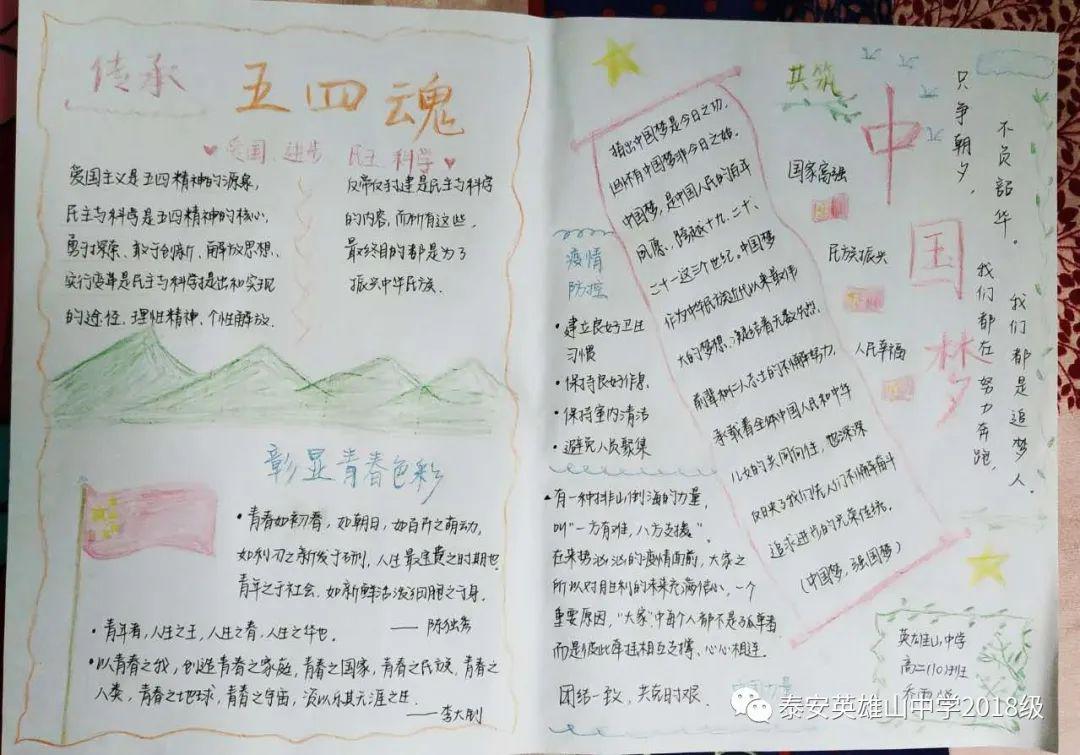 传承
五四魂
爱国 进步 民主 科学
爱国主义是五四精神的源泉,
民主与科学是五四精神的核心,
勇于探索、敢于创新、解放思想、
实行变革是民主与科学提出和实现
的途径,理性精神、个性解放、
反帝反封建是民主与科学
的内容,而所有这些,
最终目的都是为了
振兴中华民族.
彰显青春色彩
•青春如初春,如朝日,如百卉之萌动,
如利刃之新发于硎,人生最宝贵之时期也.
青年之于社会,如新鲜活泼细胞之于身.
——陈独秀
•青年者,人生之王,人生之春,人生之华也.
•以青春之我,创造青春之家庭,青春之国家,青春之民族,青春之
人类,青春之地球,青春之宇宙,资以乐其无涯之生.
——李大钊
疫情
防控
•建立良好卫生
习惯
•保持良好作息
•保持室内清洁
•避免人员聚集
•有一种排山倒海的力量,
叫"一方有难,八方支援".
在来势汹汹的疫情面前,大家之
所以对胜利的未来充满信心,一个
重要原因,"大家"中每个人都不是孤单者
而是彼此牵挂相互支撑、心心相连.
团结一致,共克时艰.
中国力量
指出中国梦是今日之功,
但怀有中国梦非今日之始.
中国梦,是中国人民的百年
夙愿,跨越十九、二十、
二十一这三个世纪。中国梦
作为中华民族近代以来最伟
大的梦想,凝结着无数
前辈和仁人志士的不懈努力,
承载着全体中国人民和中华
儿女的共同向往,也深深
映了我们先人们不懈奋斗
追求进步的光荣传统.
(中国梦,强国梦)
共筑
中国梦
国家富强
民族振兴
人民幸福
只争朝夕,
不负韶华。
我们都在努力奔跑,
我们都是追梦人.
英雄山中学
高二(10)班
乔雨
泰安英雄山中学2018级